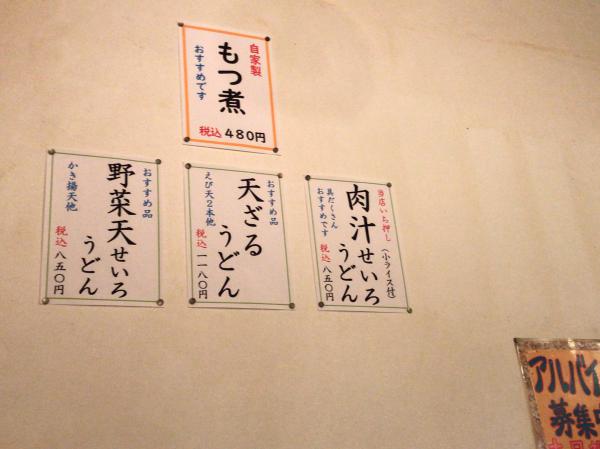 自家製
もつ煮
おすすめです
税込480円
当店いち押し
肉汁せいろ
うどん
(小ライス付)
具だくさん
おすすめです
税込八五〇円
おすすめ品
天ざる
うどん
えび天2本他
税込一一八〇円
おすすめ品
野菜天せいろ
うどん
かき揚天他
税込八五〇円
アルバイ
募集中